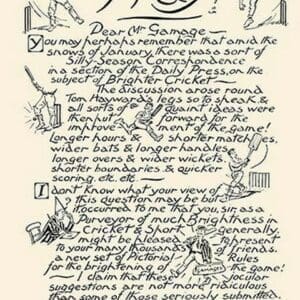 Dear Mr Gamage -
You may perhaps remember that amid the
snows of January there was a sort of
Silly-Season Correspondence
in a section of the Daily Press, on the
subject of Brighter Cricket -
The discussion arose round
Tom Hayward's legs so to speak &
all sorts of quaint ideas were
then put forward for the
improvement of the Game!
Longer hours & shorter matches,
wider bats & longer handles,
longer overs & wider wickets,
shorter boundaries & quicker
scoring. etc. etc. -
I don't know what your view of
this question may be but
it occurred to me that you, sir, as a
Purveyor of much Brightness in
Cricket & Sport generally,
might be pleased to present
to your many thousands of friends
a new set of Pictorial Rules
for the brightening of the game!
I claim that these jocular
suggestions are not more ridiculous
than some of those seriously submitted.
Gamages